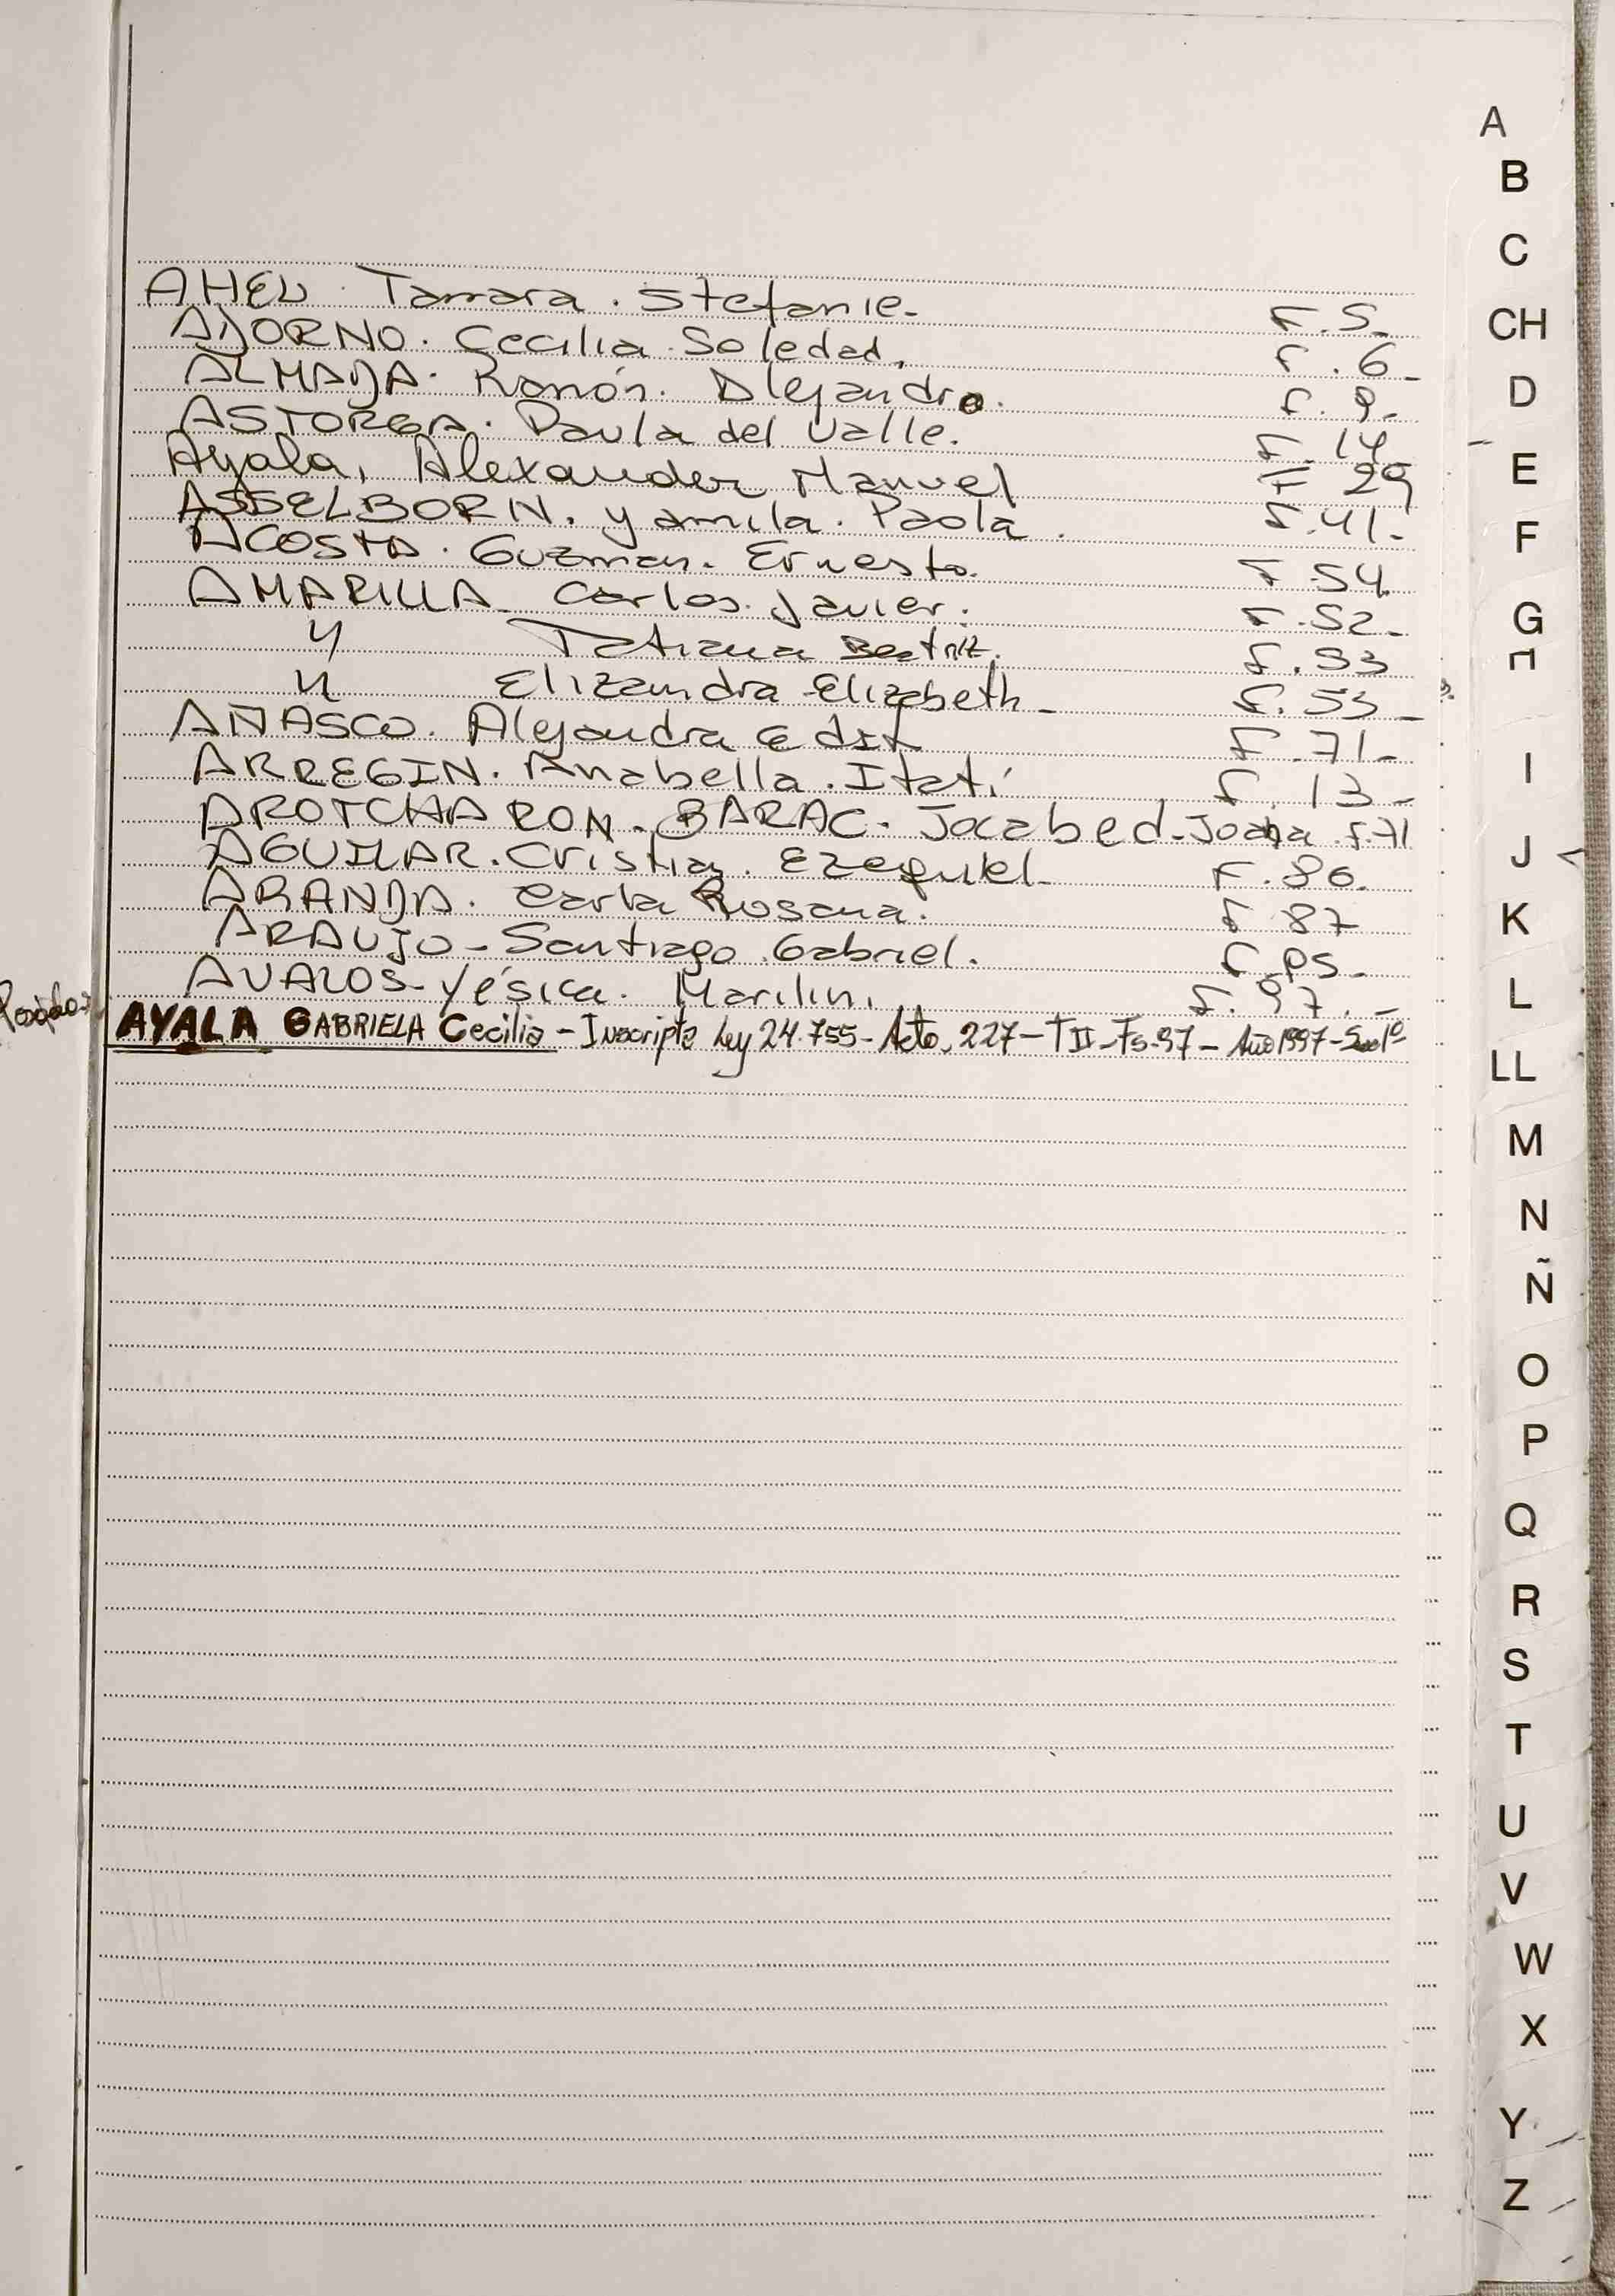 AHEL. Tamara. Stefanie. F. 5.
ADORNO. Cecilia Soledad. F. 6.
ALMADA. Ramón. Alejandro. F. 9.
ASTORGA. Paula del Valle. F. 14
Ayala, Alexander Manuel F 29
ASSELBORN. Yamila. Paola. F. 41.
ACOSTA. Guzman. Ernesto. F. 54.
AMARILLA. Carlos. Javier. F. 52.
" Tatiana Beatriz. F. 53
" Elizandra Elizabeth F. 53
AÑASCO. Alejandra Edit F. 71.
ARREGIN. Anabella. Itatí F. 13
AROTCHAREN. BARAC. Jocabed. Joana F. 71
AGUILAR. Cristian. Ezequiel F. 86.
ARANDA. Carla Rosana. F 87
ARAUJO - Santiago. Gabriel. F. 95.
AVALOS - Yésica. Marilin. F. 97.
AYALA GABRIELA Cecilia - Inscripta Ley 24.755 - Acta. 227 - T II - Fs. 97 - Año 1997 - Secc 1º
A
B
C
CH
D
E
F
G
I
J
K
L
LL
M
N
Ñ
O
P
Q
R
S
T
U
V
W
X
Y
Z